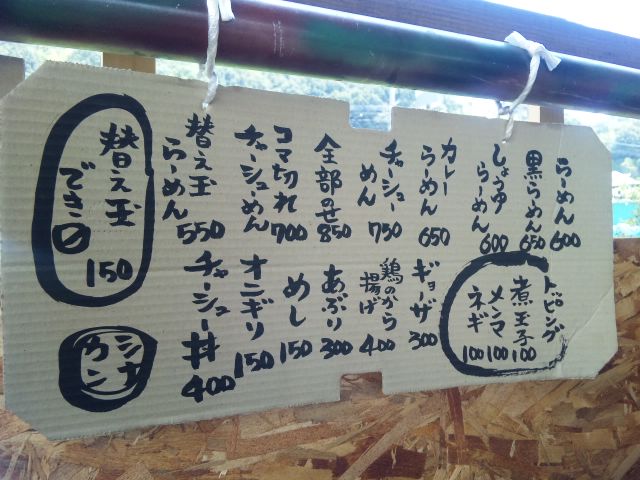 らーめん 600
黒らーめん 650
しょうゆらーめん 600
カレーらーめん 650
チャーシューめん 750
全部のせ 850
コマ切れチャーシューめん 700
替え玉らーめん 550
トッピング
煮玉子 100
メンマ 100
ネギ 100
ギョーザ 300
鶏のから揚げ 400
あぶり 300
めし 150
オニギリ 150
チャーシュー丼 400
替え玉
でき〼
150